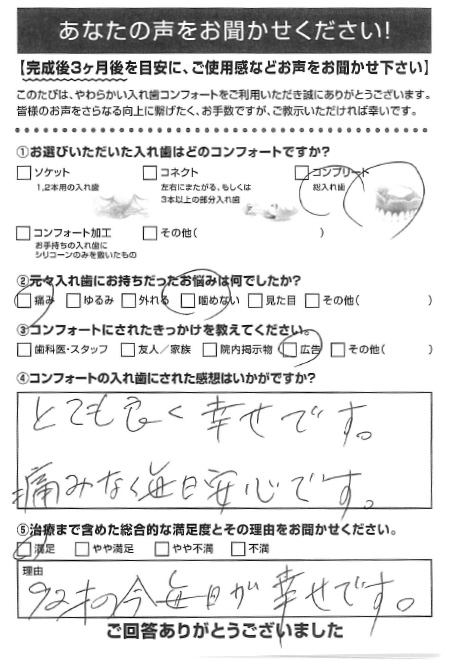 あなたの声をお聞かせください!
【完成後3ヶ月後を目安に、ご使用感などお声をお聞かせ下さい】
このたびは、やわらかい入れ歯コンフォートをご利用いただき誠にありがとうございます。
皆様のお声をさらなる向上に繋げたく、お手数ですが、ご教示いただければ幸いです。
①お選びいただいた入れ歯はどのコンフォートですか?
□ソケット □コネクト □コンプリート
1,2本用の入れ歯 左右にまたがる、もしくは 総入れ歯
3本以上の部分入れ歯
□コンフォート加工 □その他( )
お手持ちの入れ歯に
シリコーンのみを敷いたもの
②元々入れ歯にお持ちだったお悩みは何でしたか?
□痛み □ゆるみ □外れる □噛めない □見た目 □その他( )
③コンフォートにされたきっかけを教えてください。
□歯科医・スタッフ □友人／家族 □院内掲示物 □広告 □その他( )
④コンフォートの入れ歯にされた感想はいかがですか?
とても良く幸せです。
痛みなく毎日安心です。
⑤治療まで含めた総合的な満足度とその理由をお聞かせください。
□満足 □やや満足 □やや不満 □不満
理由
92才の今毎日が幸せです。
ご回答ありがとうございました